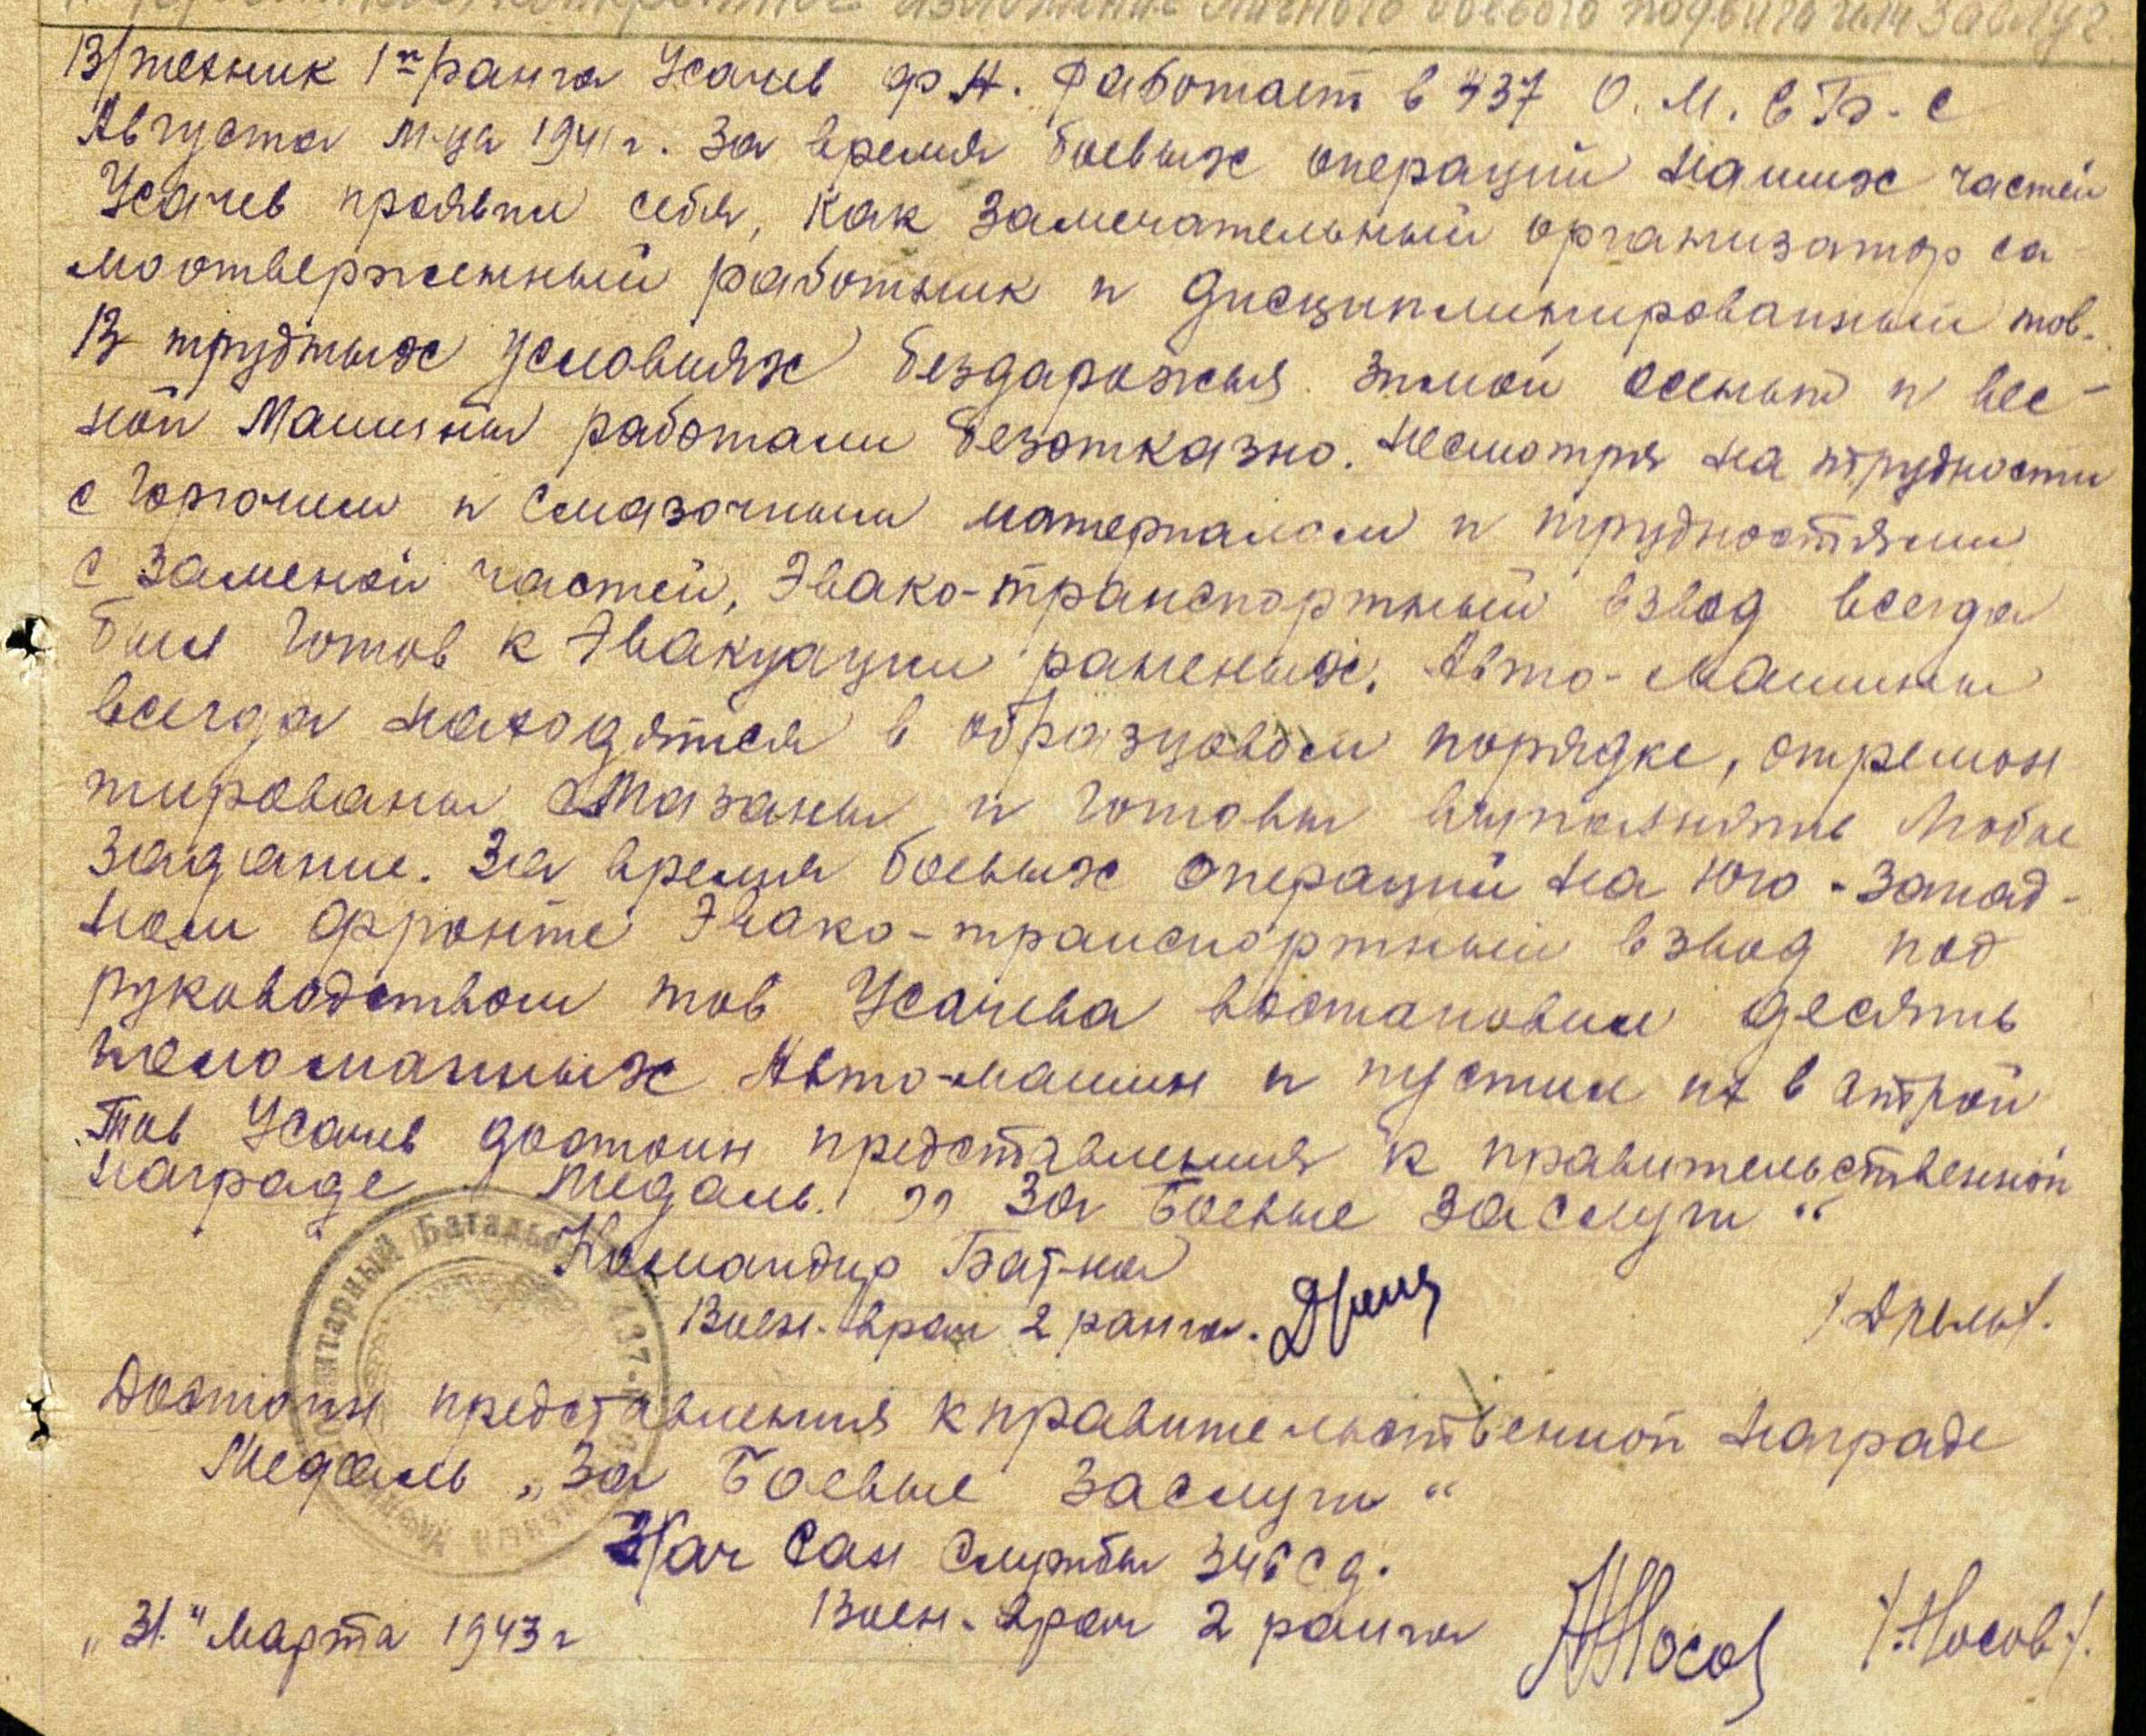 конкретное изложение личного боевого подвига или заслуг
В/техник 1го/ранга Усачев Ф.Н. Работает в 437 О.М.С.Б. с
Августа м-ца 1941 г. За время боевых операций наших частей
Усачев проявил себя, как замечательный организатор са-
моотверженный работник и дисциплинированный тов.
В трудных условиях бездарожья зимой осенью и вес-
ной Машины работали безотказно. Несмотря на трудности
с горючем и смазочным материалом и трудностями
с заменой частей, Эвако-транспортный взвод всегда
был готов к Эвакуации раненых. Авто-машины
всегда находятся в образцовом порядке, отремон
тированы смазаны и готовы выполнять любые
задание. За время боевых операций на Юго-Запад-
ном фронте Эвако-транспортный взвод под
руководством тов Усачева востановил десять
поломанных Авто-машин и пустил их в строй
Тов Усачев достоин представления к правительственной
награде медаль. "За Боевые Заслуги"
Командир Бат-на
Воен-врач 2 ранга.
Достоин представления к правительственной награде
Медаль "За Боевые Заслуги"
Нач Сан Службы 346 сд.
Воен-врач 2 ранга Носов /Носов/.
"31" Марта 1943 г